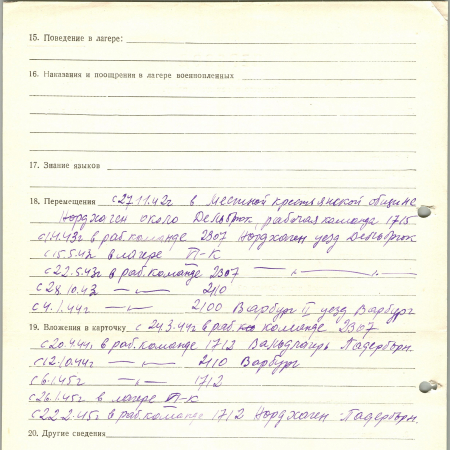 15. Поведение в лагере:
16. Наказания и поощрения в лагере военнопленных
17. Знание языков
18. Перемещения с 27.11.42г в местной крестьянской общине
Нордхаген около Дельбрюк рабочая команда 1715
с 1.4.43г в раб команде 2307 Нордхаген уезд Дельбрюк
с 15.5.43г в лагере VI-К
с 22.5.43г в раб. команде 2307 — " —
с 28.10.43 — " — 2110
с 4.1.44г — " — 2100 Варбург II, уезд Варбург
19. Вложения в карточку с 24.3.44г в раб. команде 2307
с 20.4.44г. в раб. команде 1712 Падерборн.
с 12.10.44г — " — 2110 Варбург
с 6.1.45г — " — 1712
с 26.1.45г в лагере VI-К
с 22.2.45г в раб. команде 1712 Нордхаген Падерборн.
20. Другие сведения